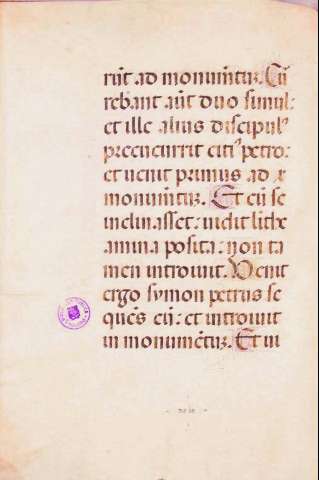 rūt ad monumētuz. Cū
rebant aūt duo simul:
et ille alius discipul⁹
precucurrit citi⁹ petro:
et uenit primus ad
monumētuz. Et cū se
inclinasset: uidit lithe
amina posita: non ta
men introiuit. Uenit
ergo symon petrus se
quēs eū: et introiuit
in monumētuz. Et ui